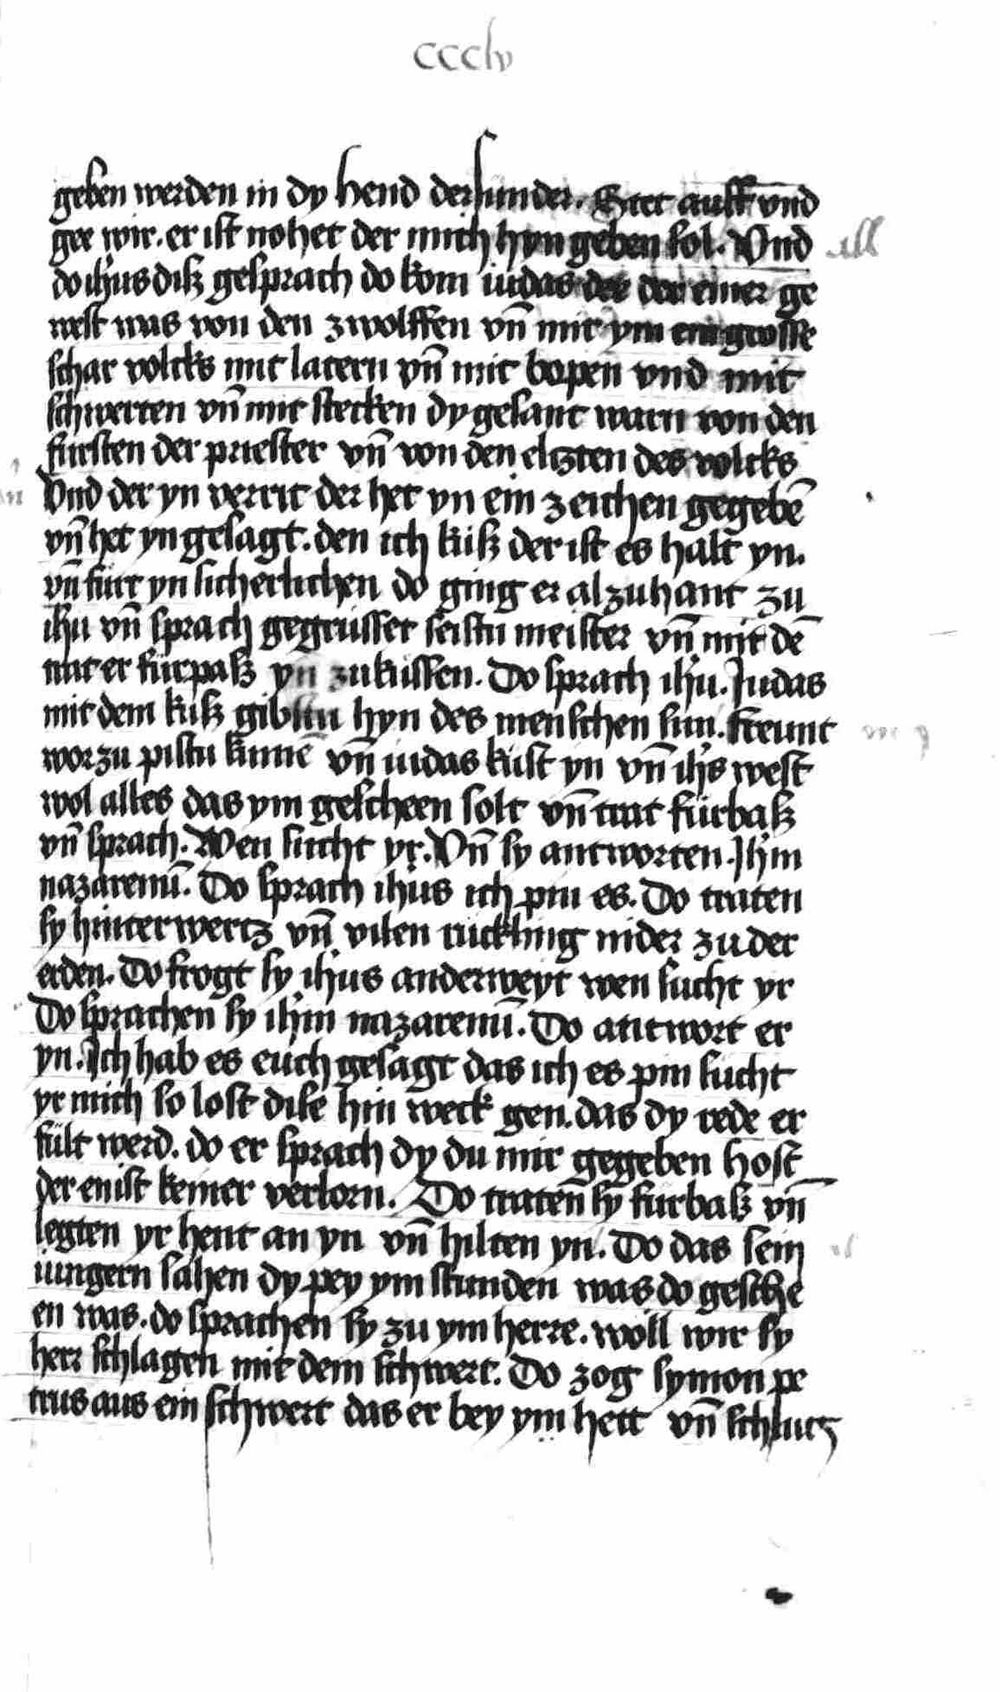 ccclv
geben werden in dy hend der sunder. Stet auff vnd
gee wir. er ist nohet der mich hyn geben sol. Vnd
do ihus diß gesprach do kom iudas der einer ge
west was von den zwolffen vn̄ mit ym ein grosse
schar volcks mit latern vn̄ mit bopen vnd mit
schwerten vn̄ mit stecken dy gesant warn von den
fursten der priester vn̄ von den elczten des volcks
Vnd der yn verrit der het yn ein zeichen gegebē
vn̄ het yn gesagt. den ich küß der ist es halt yn.
vn̄ fürt yn sicherlichen do ging er alzuhant zu
ihu vn̄ sprach gegrüsset seistu meister vn̄ mit dē
trat er fürpaß yn zuküssen. Do sprach ihu. Judas
mit dem küß gibstu hyn des menschen sun. freunt
worzu pistu kumē vn̄ iudas küst yn vn̄ ihs west
wol alles das ym gescheen solt vn̄ trat fürbaß
vn̄ sprach. Wen sucht yr. Vn̄ sy antworten. Jhm
nazarenū. Do sprach ihus ich pin es. Do traten
sy hinterwertz vn̄ vilen rückling nider zu der
erden. Do frogt sy ihus anderweyt wen sucht yr
Do sprachen sy ihm nazarenū. Do antwort er
yn. Ich hab es euch gesagt das ich es pin sucht
yr mich so lost dise hin weck gen. das dy rede er
fült werd. do er sprach dy du mir gegeben host
der enist keiner verlorn. Do tratēn sy fürbaß vn̄
legten yr hent an yn vn̄ hilten yn. Do das sein
iungern sahen dy pey ym stunden was do gesche
en was. do sprachen sy zu ym herre. wöll wir sy
herr schlagen mit dem schwert. Do zog symon pe
trus aus ein schwert das er bey ym hett vn̄ schlug